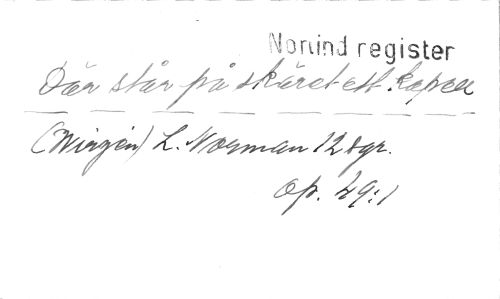 Norlind register
Där står på skäret ett kapell
(Wirzén) L. Norman 12 sgr.
op. 49:1